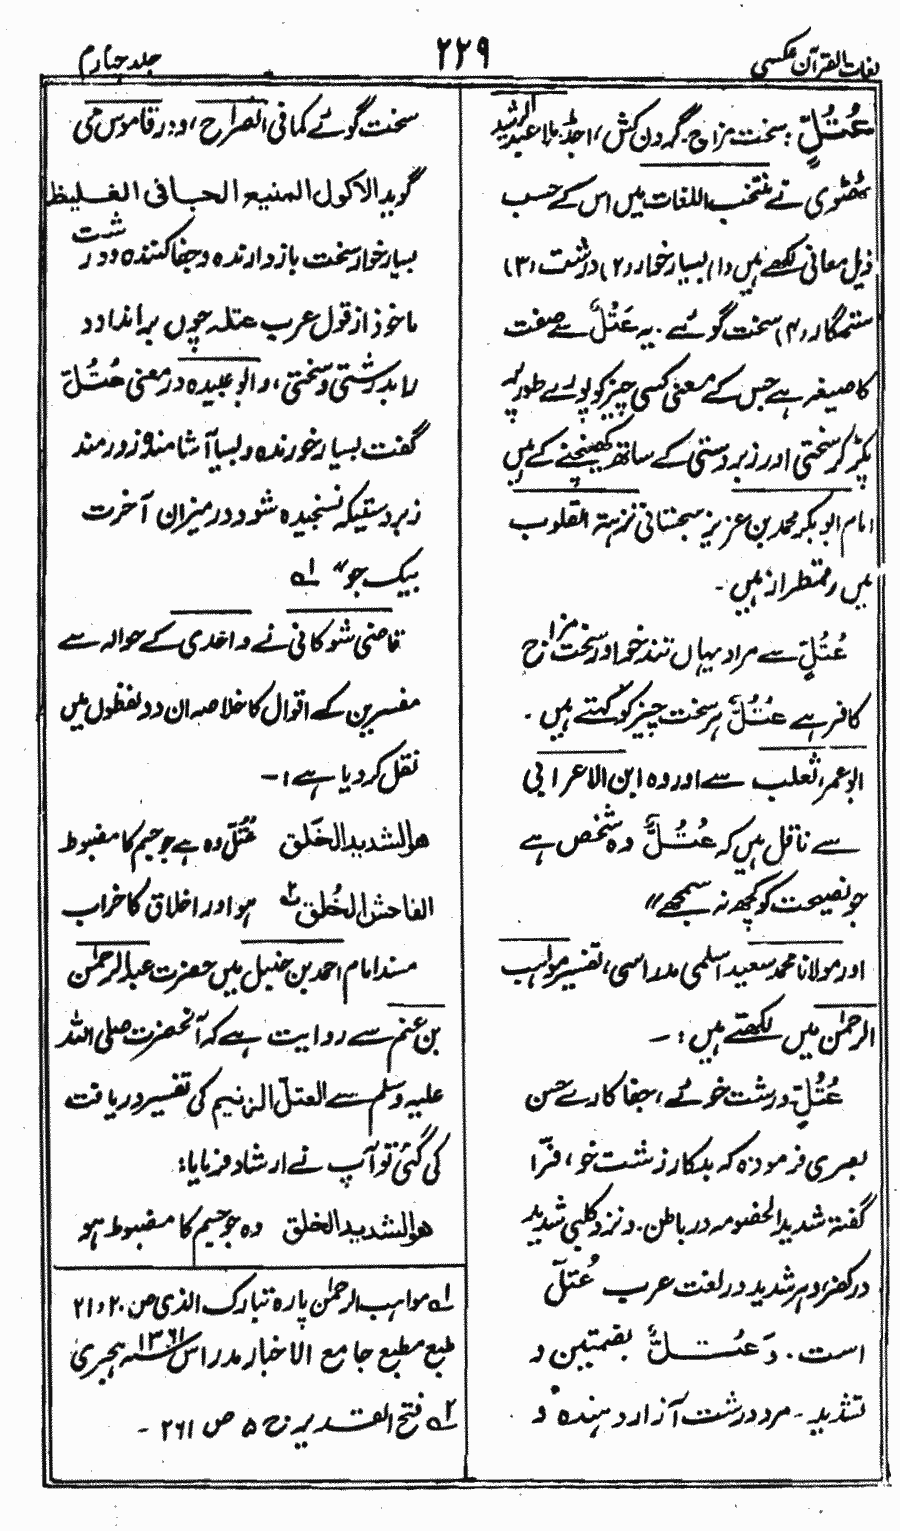 لغات القرآن عکسی
۲۲۹
جلد چہارم
عُتُلٍّ: سخت مزاج، گردن کش، اجڈ، ملا عبدالرشید
ٹھٹوی نے منتخب اللغات میں اس کے حسب
ذیل معانی لکھے ہیں (۱) بسیار خوار (۲) درشت (۳)
ستمگار (۴) سخت گوئے۔ یہ عَتْلٌ سے صفت
کا صیغہ ہے جس کے معنی کسی چیز کو پورے طور پر
پکڑ کر سختی اور زبردستی کے ساتھ کھینچنے کے ہیں
امام ابوبکر محمد بن عزیز سجستانی نزہتہ القلوب
میں رقمطراز ہیں۔
عُتُلٍّ سے مراد یہاں تندخو اور سخت مزاج
کافر ہے عُتُلٌّ ہر سخت چیز کو کہتے ہیں۔
ابوعمر، ثعلب سے اور وہ ابن الاعرابی
سے ناقل ہیں کہ عُتُلٌّ وہ شخص ہے
جو نصیحت کو کچھ نہ سمجھے"
اور مولانا محمد سعید اسلمی مدراسی، تفسیر مواہب
الرحمٰن میں لکھتے ہیں:۔
عُتُلٍّ۔ درشت خوئے، جفا کارے حسن
بصری فرمودہ کہ بدکار زشت خو، فرّا
گفتہ شدید الخصومہ در باطن۔ و نزد کلبی شدید
در کفر، و ہر شدید در لغت عرب عُتلّ
است۔ وَ عُتُلٌّ بضمتین و
تشدید۔ مرد درشت آزار دہندہ و
سخت گوئے کما فی الصراح، و در قاموس می
گوید الاکول المنیع الجافی الغلیظ
بسیار خوار سخت باز دارندہ و جفا کنندہ و درشت
ماخوذ از قول عرب عتلہ چوں براند اورا
را بدرشتی و سختی، و ابو عبیدہ در معنی عُتُلّ
گفت بسیار خورندہ و بسیار آشامندہ و زور مند
زبردستیکہ نسنجیدہ شود در میزان آخرت
بیک جو" لہ
قاضی شوکانی نے واحدی کے حوالہ سے
مفسرین کے اقوال کا خلاصہ ان دو لفظوں میں
نقل کر دیا ہے:۔
ھو الشدید الخَلق عُتُلّ وہ ہے جو جسم کا مضبوط
الفاحش الخُلق ۲ہ ہو اور اخلاق کا خراب
مسند امام احمد بن حنبل میں حضرت عبدالرحمٰن
بن غنم سے روایت ہے کہ آنحضرت صلی اللہ
علیہ وسلم سے العتلّ الزنیم کی تفسیر دریافت
کی گئی تو آپ نے ارشاد فرمایا:
ھو الشدید الخلق وہ جو جسم کا مضبوط ہو
۱ہ مواہب الرحمٰن پارہ تبارک الذی ص ۲۰ و ۲۱
طبع مطبع جامع الاخبار مدراس ۱۲۶۱ ہجری
۲ہ فتح القدیر ج ۵ ص ۲۶۱۔